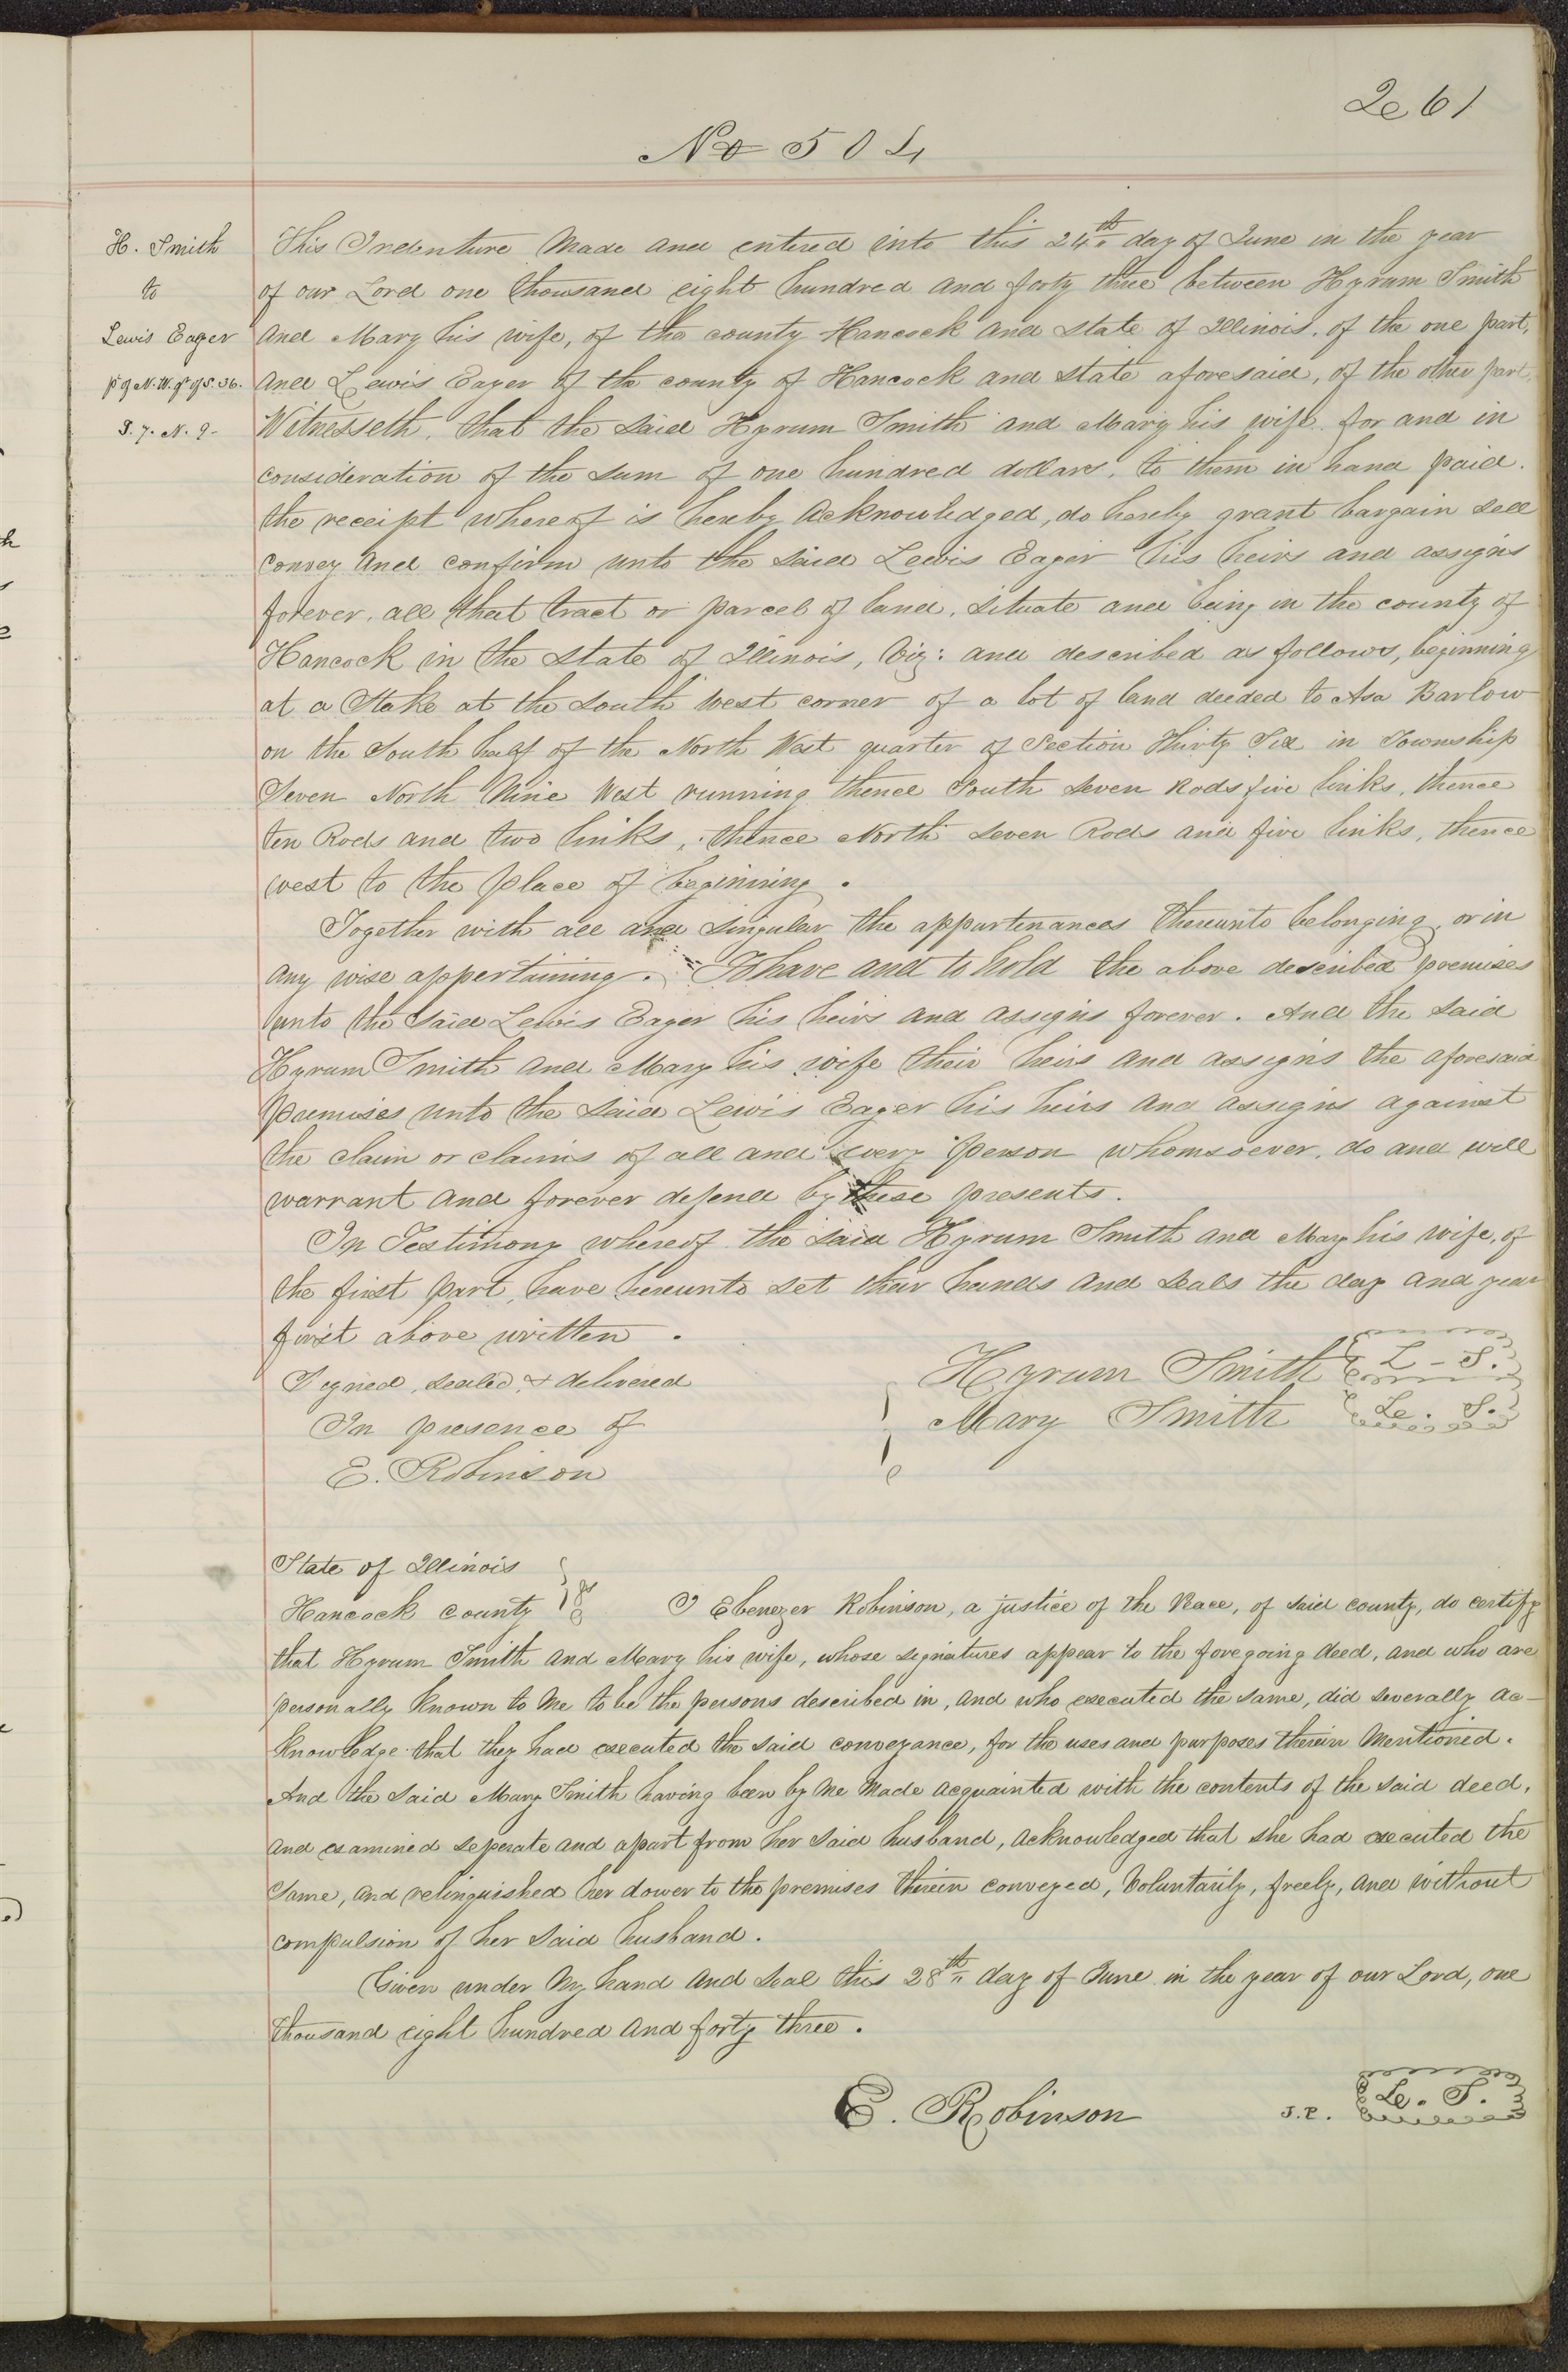 261
No 504
H. Smith
to
Lewis Eager
pt of N.W. qr of S. 36.
T. 7. N. 9-
This Indenture Made and entered into this 24th day of June in the year
of our Lord one thousand eight hundred and forty three between Hyrum Smith
and Mary his wife, of the county Hancock and state of Illinois, of the one part,
and Lewis Eager of the county of Hancock and state aforesaid, of the other part,
Witnesseth, that the said Hyrum Smith and Mary his wife for and in
consideration of the sum of one hundred dollars, to them in hand paid.
the receipt whereof is hereby Acknowledged, do hereby grant bargain sell
convey and confirm unto the said Lewis Eager his heirs and assigns
forever, all that tract or parcel of land, situate and being in the county of
Hancock in the State of Illinois, Viz: and described as follows, beginning
at a Stake at the South West corner of a lot of land deeded to Asa Barlow
on the South half of the North West quarter of Section Thirty Six in Township
Seven North Nine West running thence South seven Rods five links, thence
ten Rods and two links, thence North seven Rods and five links, thence
west to the place of beginning.
Together with all and singular the appurtenances thereunto belonging, or in
any wise appertaining. To have and to hold the above described premises
unto the said Lewis Eager his heirs and assigns forever. And the said
Hyrum Smith and Mary his wife their heirs and assigns the aforesaid
premises unto the said Lewis Eager his heirs and assigns against
the claim or claims of all and every person whomsoever, do and will
warrant and forever defend by these presents.
In Testimony whereof the said Hyrum Smith and Mary his wife, of
the first part, have hereunto set their hands and seals the day and year
first above written.
Signed, sealed, & delivered
In presence of
E. Robinson
Hyrum Smith L-S.
Mary Smith L. S.
State of Illinois
Hancock county ss I Ebenezer Robinson, a justice of the Peace, of said county, do certify
that Hyrum Smith and Mary his wife, whose signatures appear to the foregoing deed, and who are
personally known to me to be the persons described in, and who executed the same, did severally ac-
knowledge that they had executed the said conveyance, for the uses and purposes therein Mentioned.
And the said Mary Smith having been by me made acquainted with the contents of the said deed,
and examined seperate and apart from her said husband, acknowledged that she had executed the
same, and relinquished her dower to the premises therein conveyed, voluntarily, freely, and without
compulsion of her said husband.
Given under my hand and seal this 28th day of June in the year of our Lord, one
thousand eight hundred and forty three.
E. Robinson J.P. L. S.